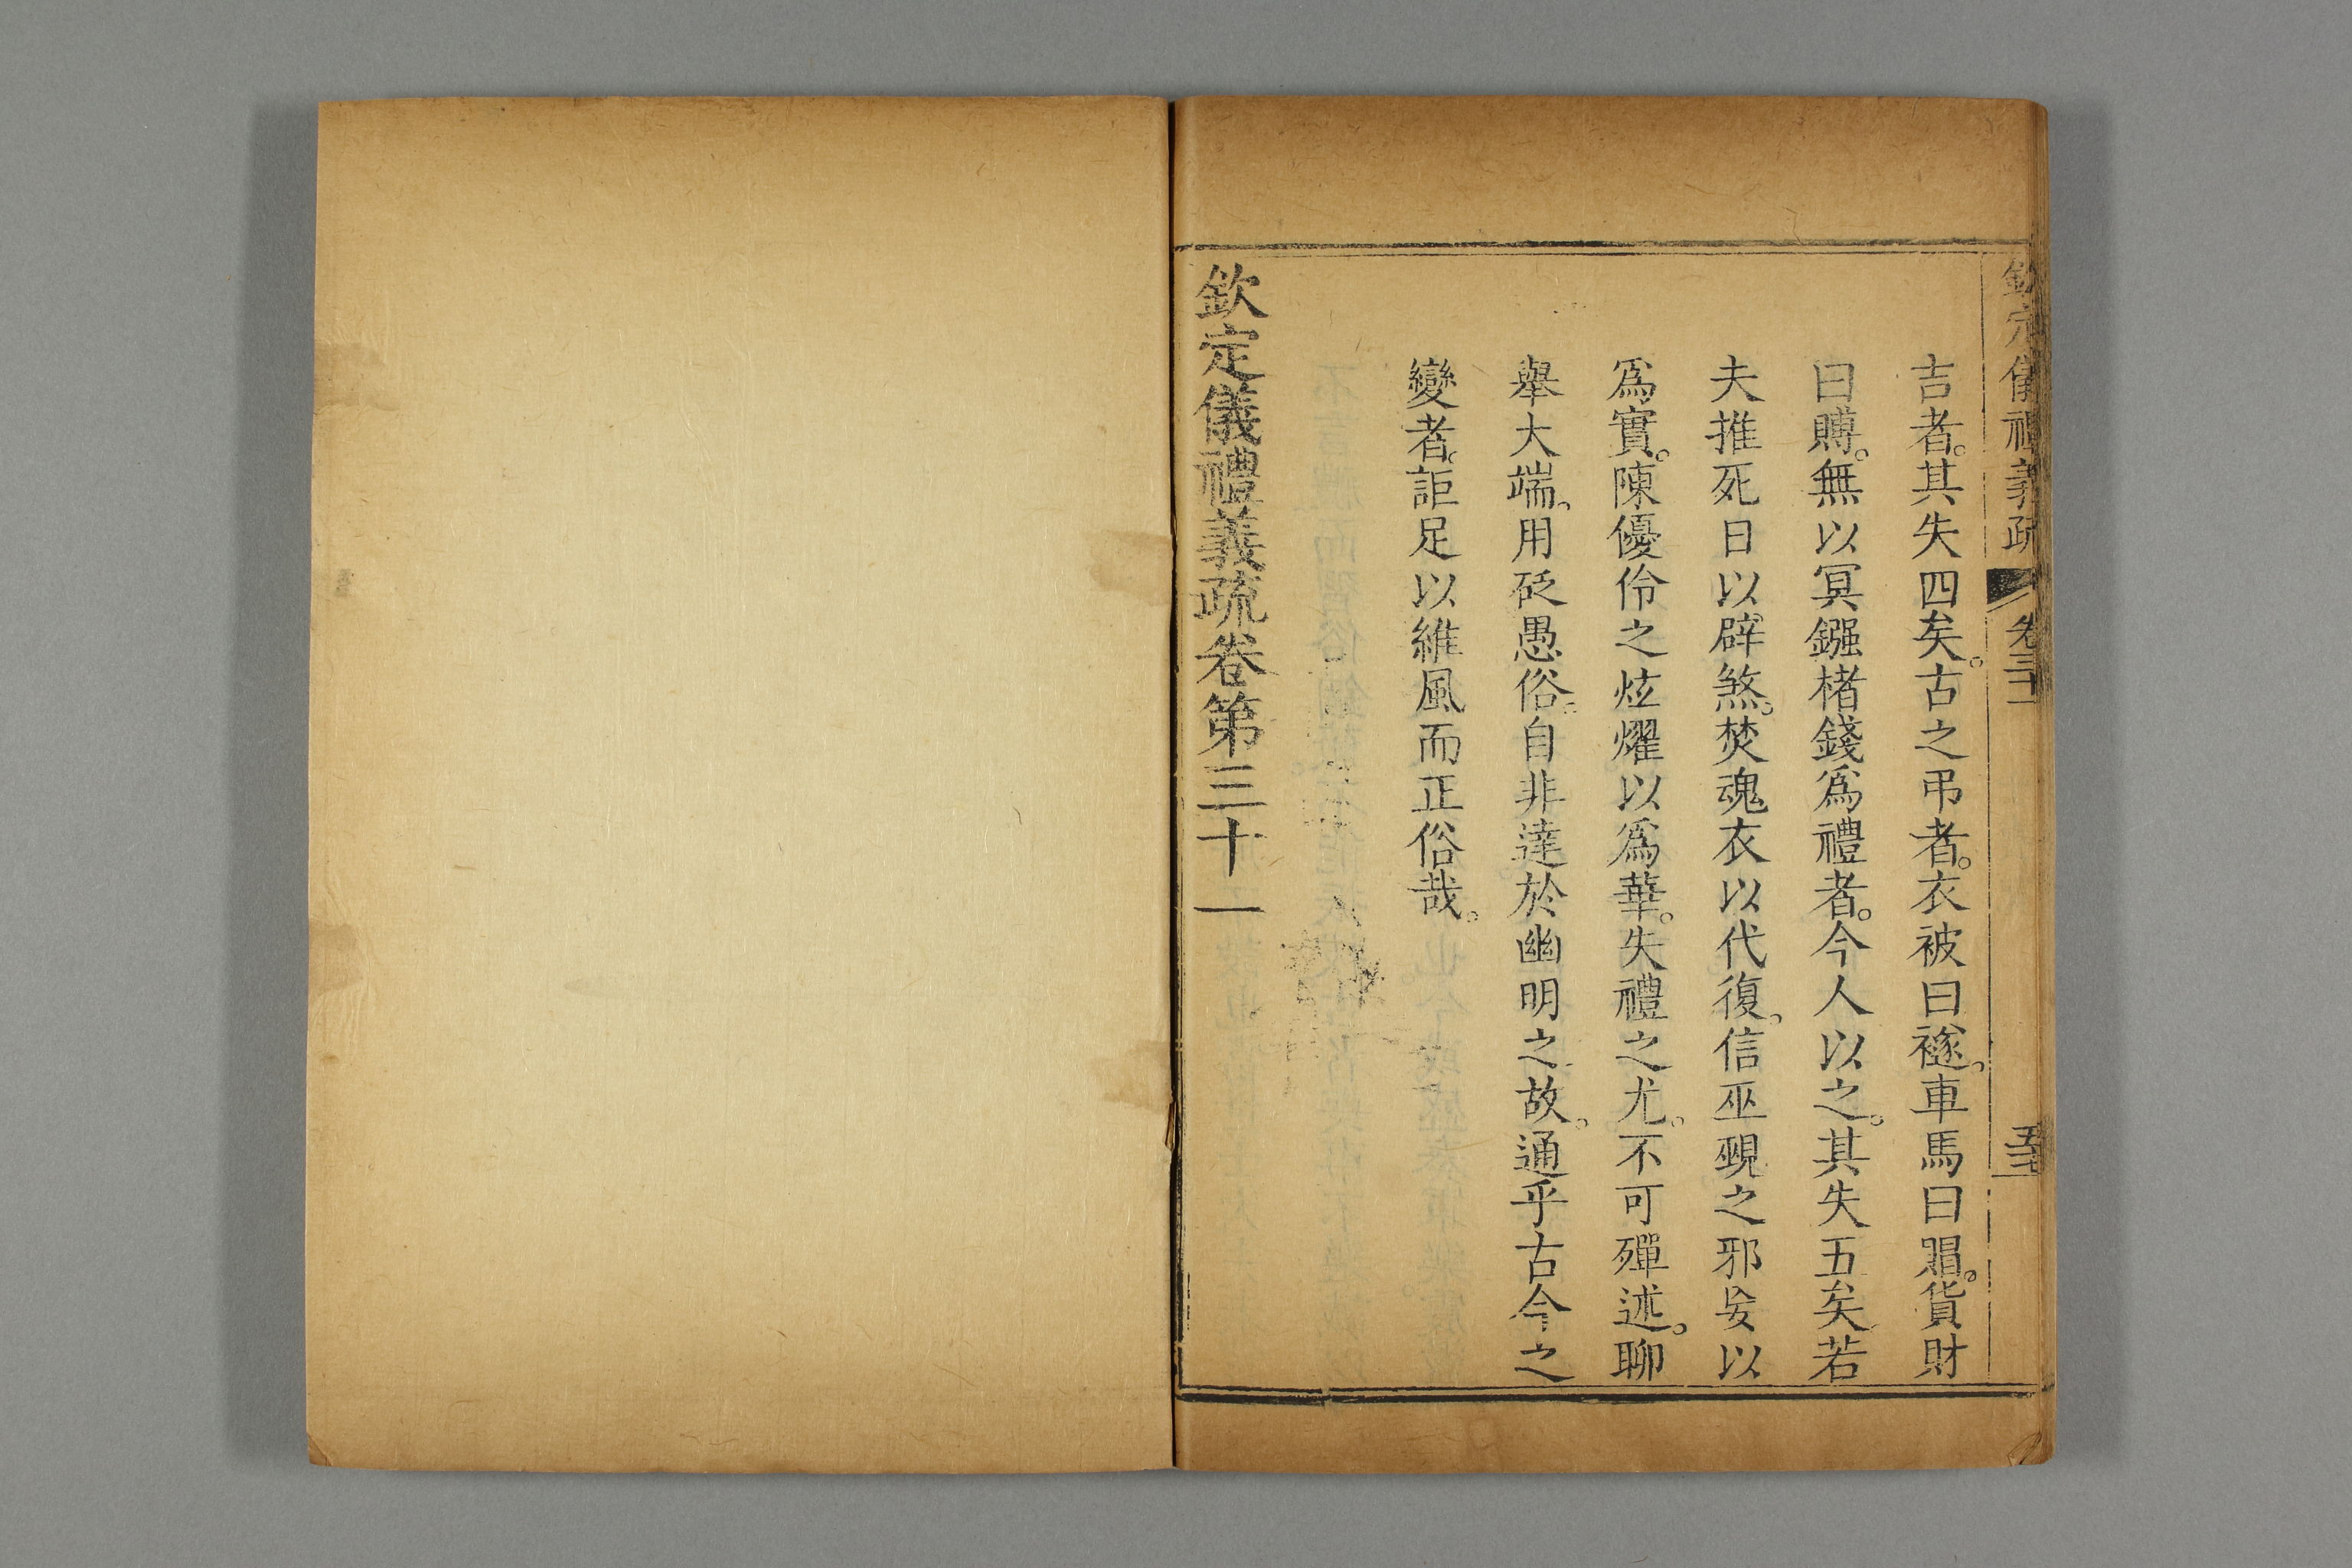 欽定儀禮義疏 卷三十一
吉者。其失四矣。古之弔者。衣被曰襚。車馬曰賵。貨財
曰賻。無以冥鏹楮錢爲禮者。今人以之。其失五矣若
夫推死日以辟煞。焚魂衣以代復。信巫覡之邪妄以
爲實。陳優伶之炫燿以爲華。失禮之尤。不可殫述。聊
舉大端。用砭愚俗。自非達於幽明之故。通乎古今之
變者。詎足以維風而正俗哉。
欽定儀禮義疏卷第三十一